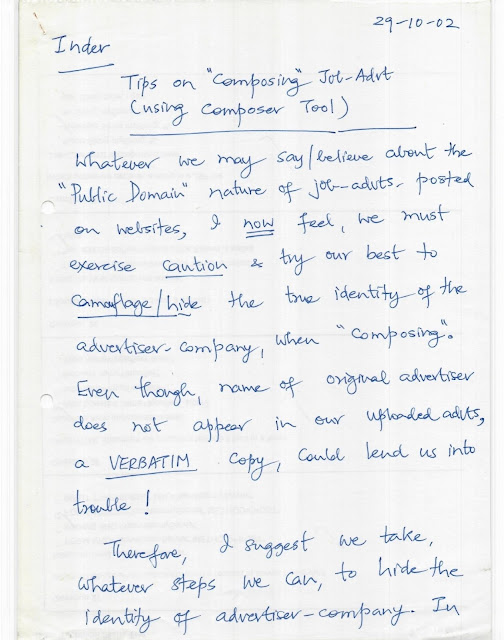 29-10-02
Inder
Tips on "Composing" Job-Advt
(using Composer Tool)
Whatever we may say/believe about the
"Public Domain" nature of job-advts. posted
on websites, I now feel, we must
exercise caution & try our best to
camouflage/hide the true identity of the
advertiser-company, when "composing".
Even though, name of original advertiser
does not appear in our uploaded advts,
a VERBATIM copy, could lend us into
trouble!
Therefore, I suggest we take,
whatever steps we can, to hide the
identity of advertiser-company. In